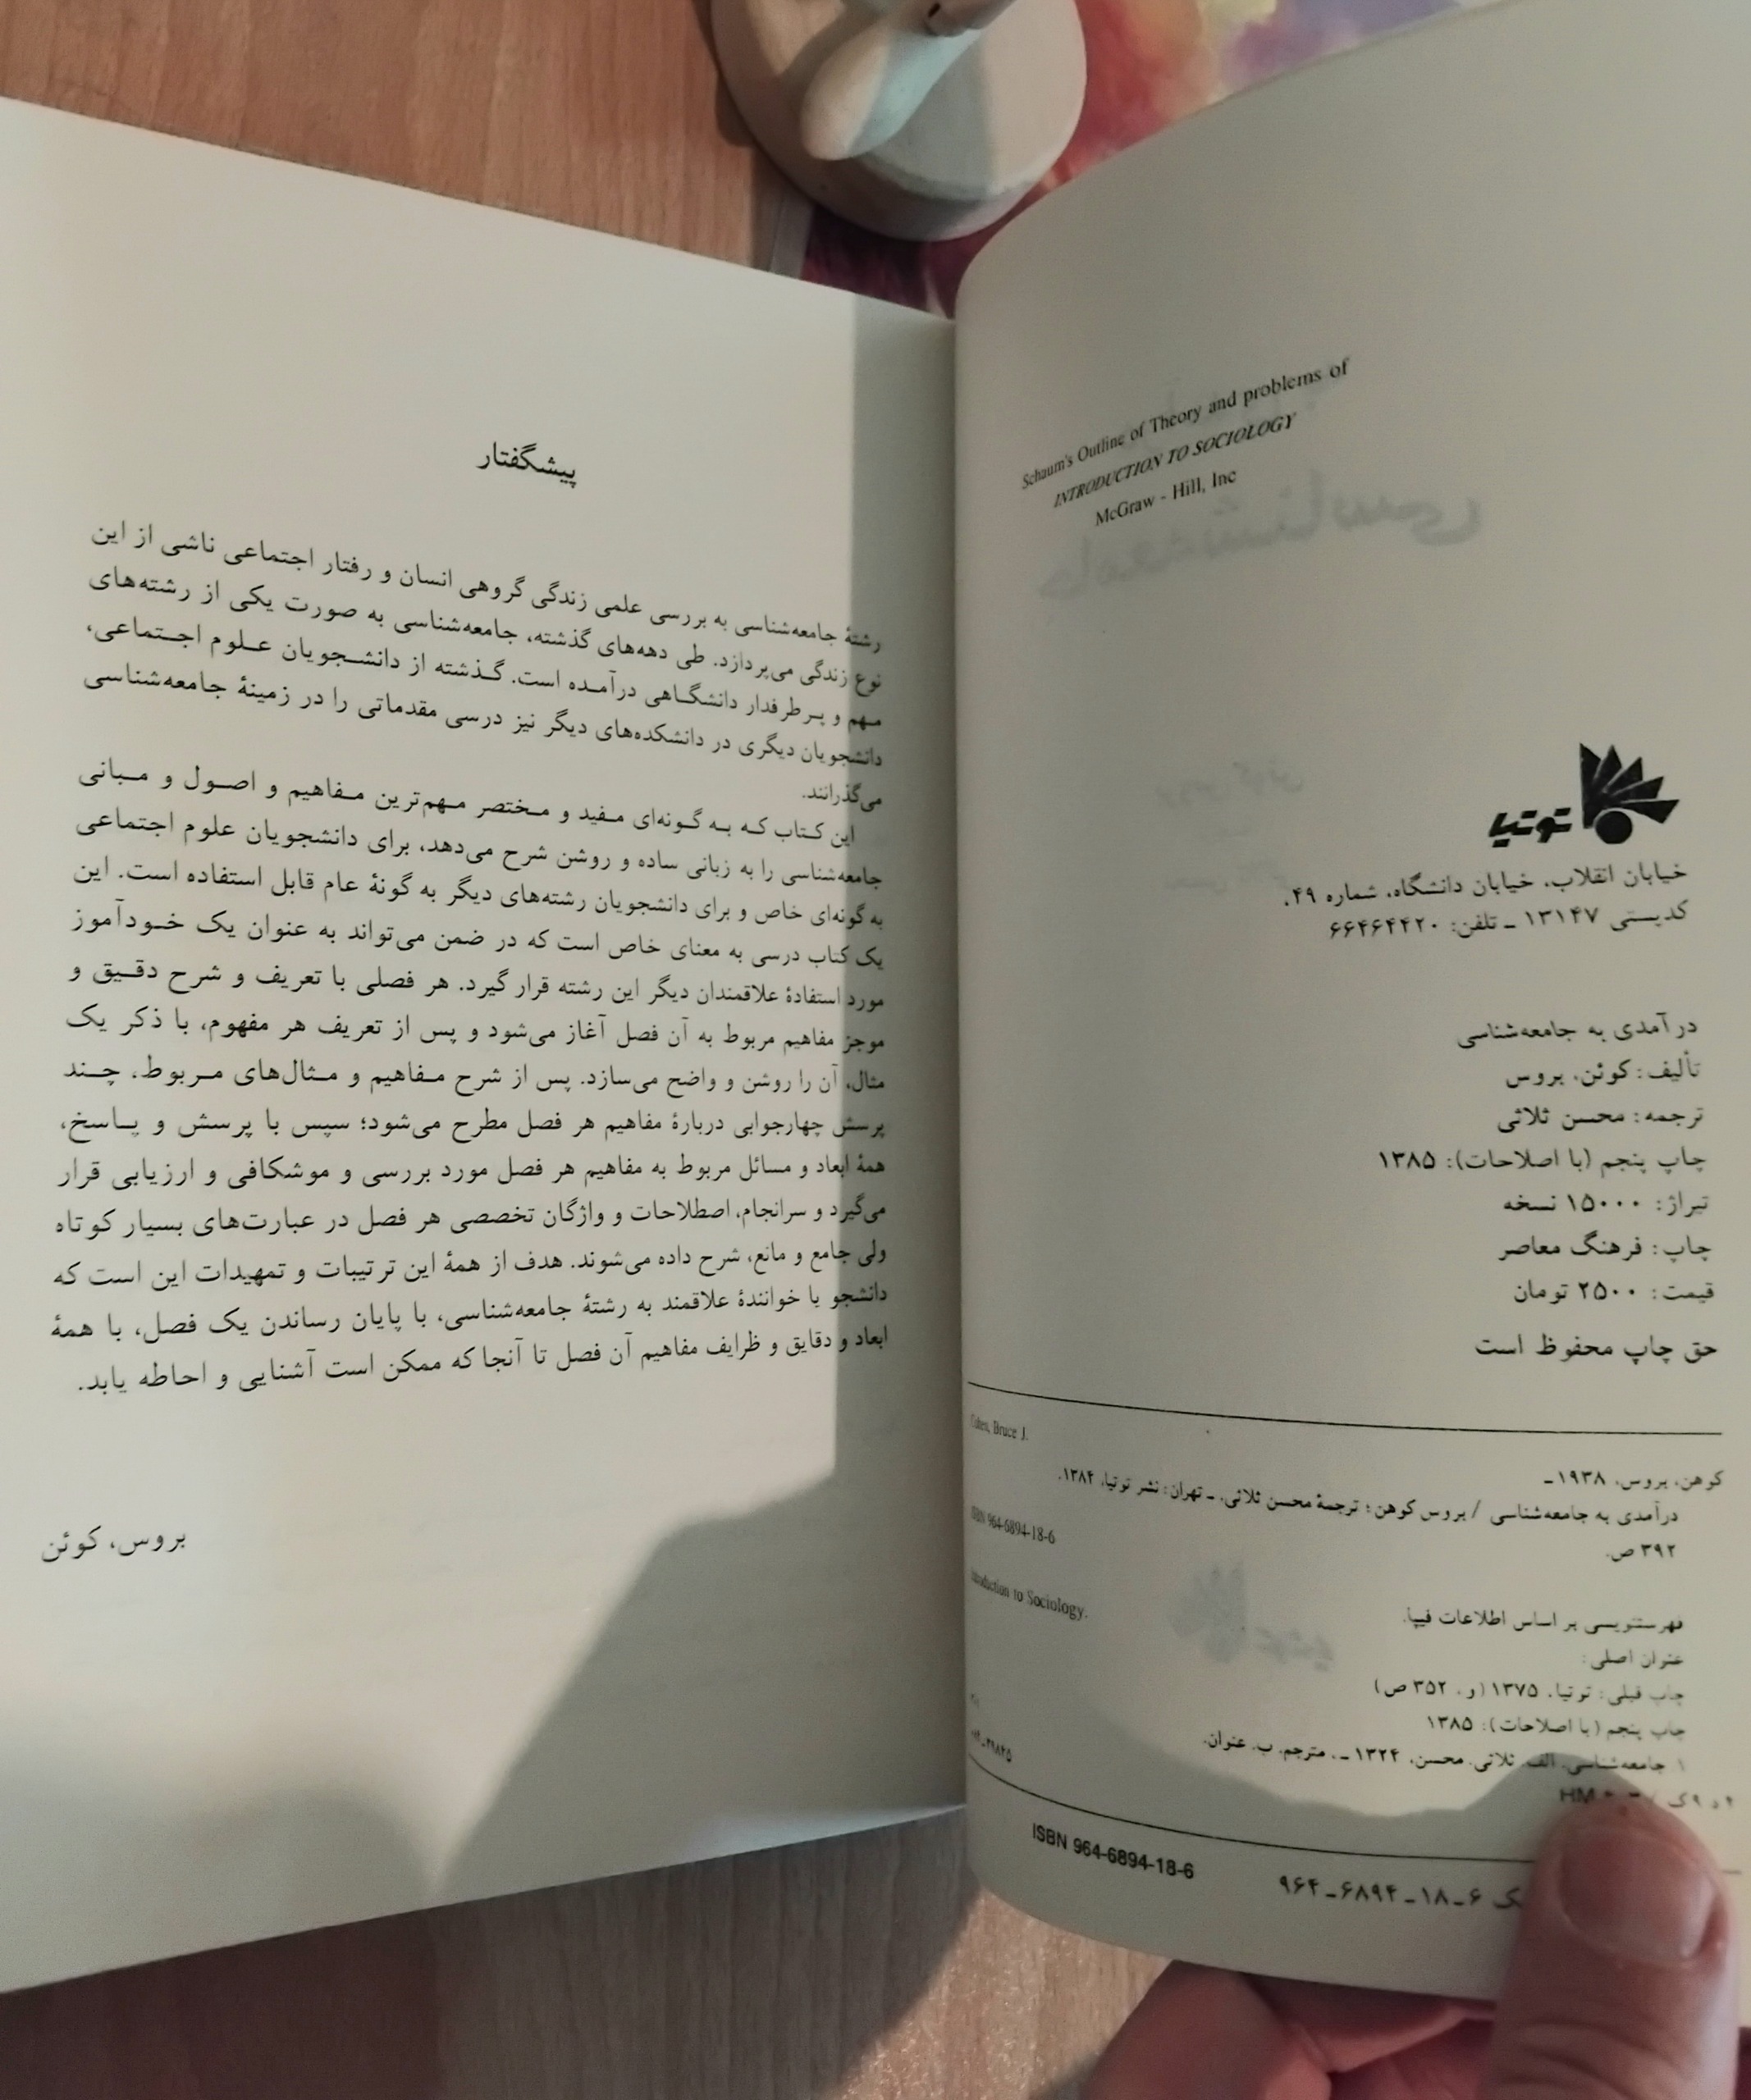 Schaum's Outline of Theory and problems of
INTRODUCTION TO SOCIOLOGY
McGraw - Hill, Inc
توتیا
خیابان انقلاب، خیابان دانشگاه، شماره ۴۹.
کدپستی ۱۳۱۴۷ ـ تلفن: ۶۶۴۶۴۴۲۰
درآمدی به جامعه‌شناسی
تألیف: کوئن، بروس
ترجمه: محسن ثلاثی
چاپ پنجم (با اصلاحات): ۱۳۸۵
تیراژ: ۱۵۰۰۰ نسخه
چاپ: فرهنگ معاصر
قیمت: ۲۵۰۰ تومان
حق چاپ محفوظ است
Bruce J.
کوهن، بروس، ۱۹۳۸ـ
درآمدی به جامعه‌شناسی / بروس کوهن؛ ترجمهٔ محسن ثلاثی. ـ تهران: نشر توتیا، ۱۳۸۴.
۳۹۲ ص.
ISBN 964-6894-18-6
فهرستنویسی بر اساس اطلاعات فیپا.
عنوان اصلی:
Introduction to Sociology.
چاپ قبلی: توتیا، ۱۳۷۵ (و، ۳۵۲ ص)
چاپ پنجم (با اصلاحات): ۱۳۸۵
۱. جامعه‌شناسی. الف. ثلاثی، محسن، ۱۳۲۴ ـ ، مترجم. ب. عنوان.
HM
ISBN 964-6894-18-6
۹۶۴ـ۶۸۹۴ـ۱۸ـ۶
پیشگفتار
رشتهٔ جامعه‌شناسی به بررسی علمی زندگی گروهی انسان و رفتار اجتماعی ناشی از این
نوع زندگی می‌پردازد. طی دهه‌های گذشته، جامعه‌شناسی به صورت یکی از رشته‌های
مهم و پرطرفدار دانشگاهی درآمده است. گذشته از دانشجویان علوم اجتماعی،
دانشجویان دیگری در دانشکده‌های دیگر نیز درسی مقدماتی را در زمینهٔ جامعه‌شناسی
می‌گذرانند.
این کتاب که به گونه‌ای مفید و مختصر مهم‌ترین مفاهیم و اصول و مبانی
جامعه‌شناسی را به زبانی ساده و روشن شرح می‌دهد، برای دانشجویان علوم اجتماعی
به گونه‌ای خاص و برای دانشجویان رشته‌های دیگر به گونهٔ عام قابل استفاده است. این
یک کتاب درسی به معنای خاص است که در ضمن می‌تواند به عنوان یک خودآموز
مورد استفادهٔ علاقمندان دیگر این رشته قرار گیرد. هر فصلی با تعریف و شرح دقیق و
موجز مفاهیم مربوط به آن فصل آغاز می‌شود و پس از تعریف هر مفهوم، با ذکر یک
مثال، آن را روشن و واضح می‌سازد. پس از شرح مفاهیم و مثال‌های مربوط، چند
پرسش چهارجوابی دربارهٔ مفاهیم هر فصل مطرح می‌شود؛ سپس با پرسش و پاسخ،
همهٔ ابعاد و مسائل مربوط به مفاهیم هر فصل مورد بررسی و موشکافی و ارزیابی قرار
می‌گیرد و سرانجام، اصطلاحات و واژگان تخصصی هر فصل در عبارت‌های بسیار کوتاه
ولی جامع و مانع، شرح داده می‌شوند. هدف از همهٔ این ترتیبات و تمهیدات این است که
دانشجو یا خوانندهٔ علاقمند به رشتهٔ جامعه‌شناسی، با پایان رساندن یک فصل، با همهٔ
ابعاد و دقایق و ظرایف مفاهیم آن فصل تا آنجا که ممکن است آشنایی و احاطه یابد.
بروس، کوئن